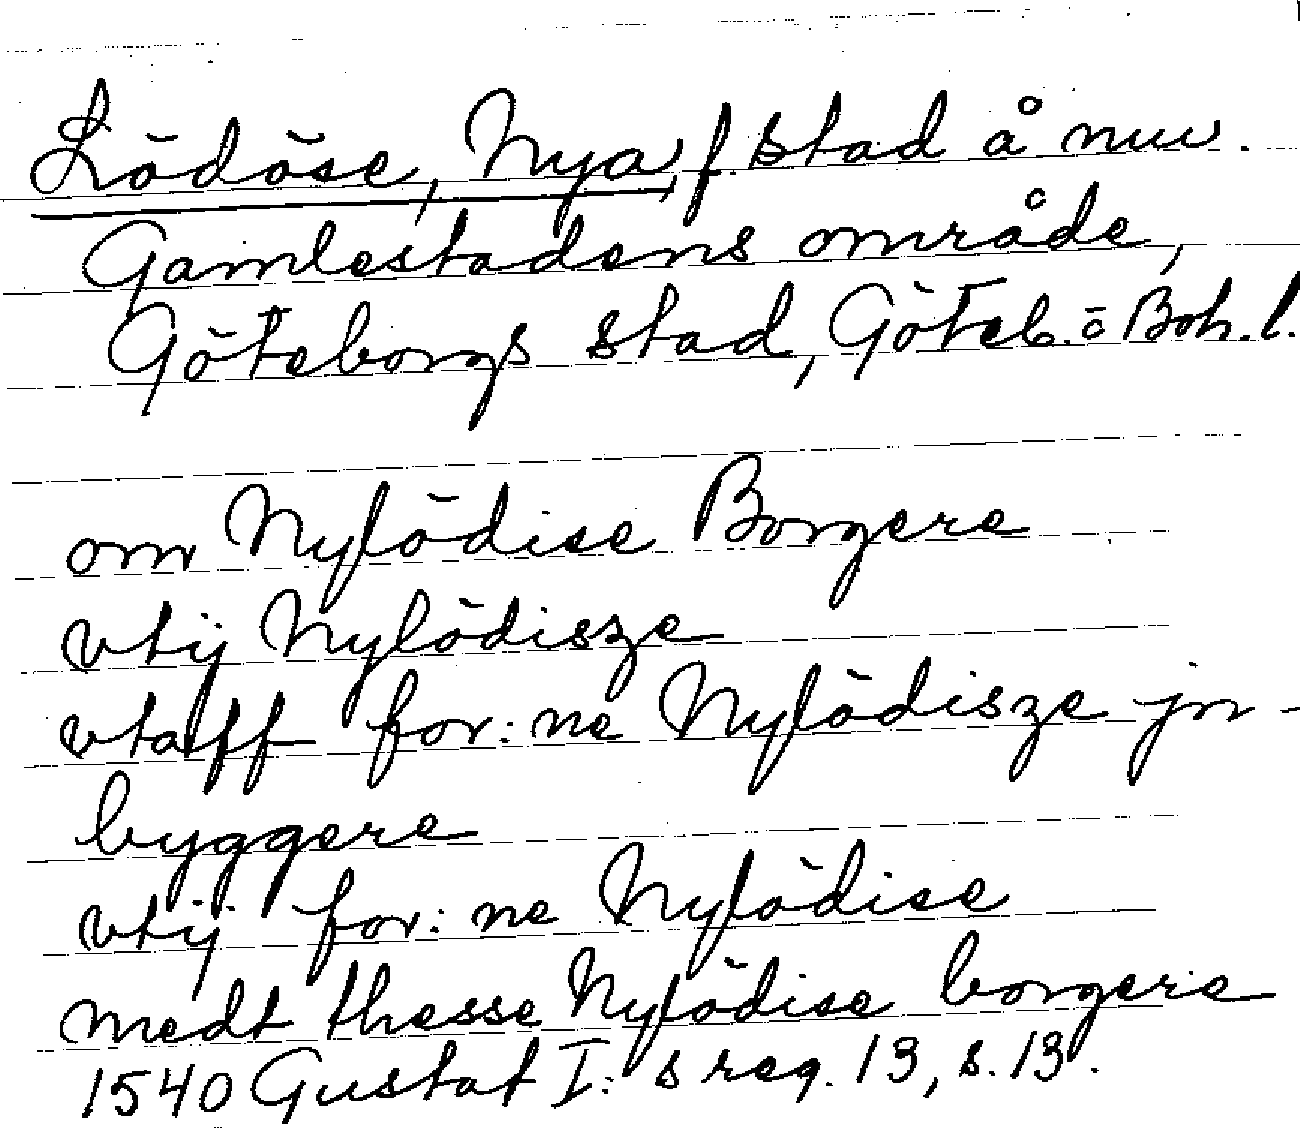 Lödöse, Nya, f. stad å nuv.
Gamlestadens område,
Göteborgs stad, Göteb. o Boh. l.
om Nylödise Borgere
vtij Nylödisze
vtaff for:ne Nylödisze jn-
byggere
vtij for:ne Nylödise
medt thesse Nylödise borgere
1540 Gustaf I:s reg. 13, s. 13.